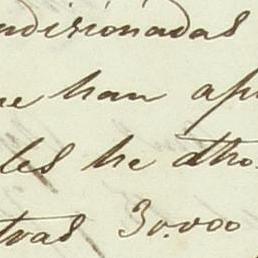 ndisionadas
ne han ap
les he dho
tras 30.000